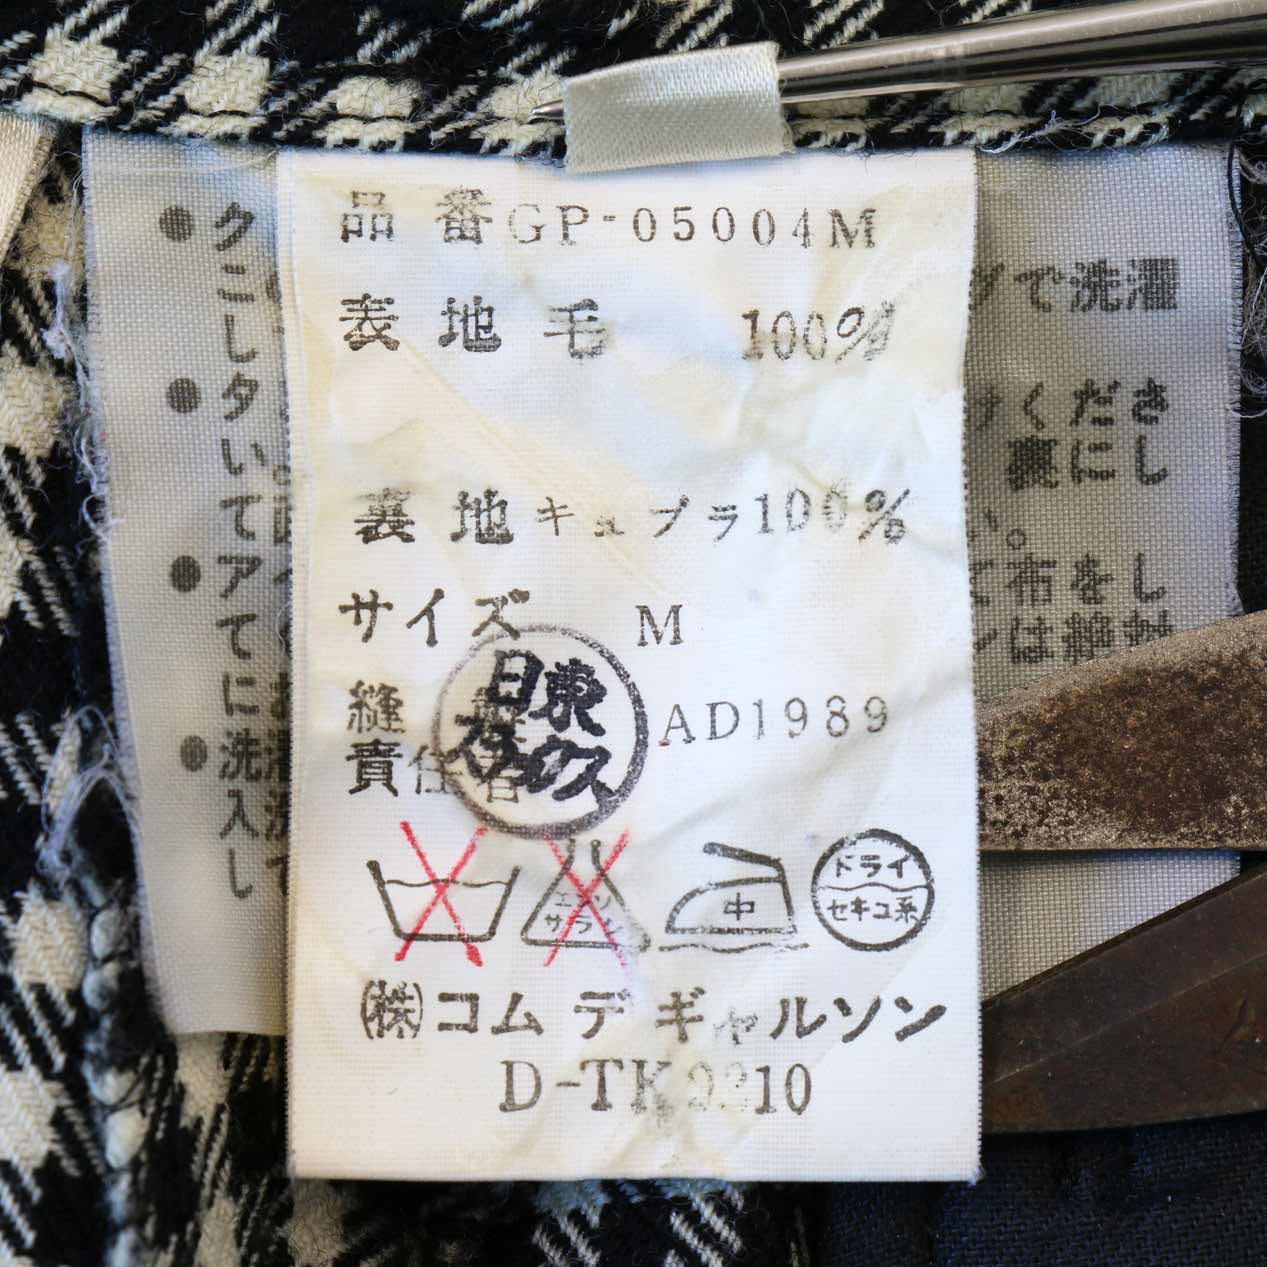 品番GP-05004M
表地 毛 100%
裏地 キュプラ100%
サイズ M
縫製 AD1989
責任者
日東
スラックス
エンソ
サラシ
中
ドライ
セキユ系
㈱コムデギャルソン
D-TK 10
●ク
こし
●タ
いて
●ア
てに
●洗濯
入し
で洗濯
くださ
裏にし
い。
布をし
は絶対